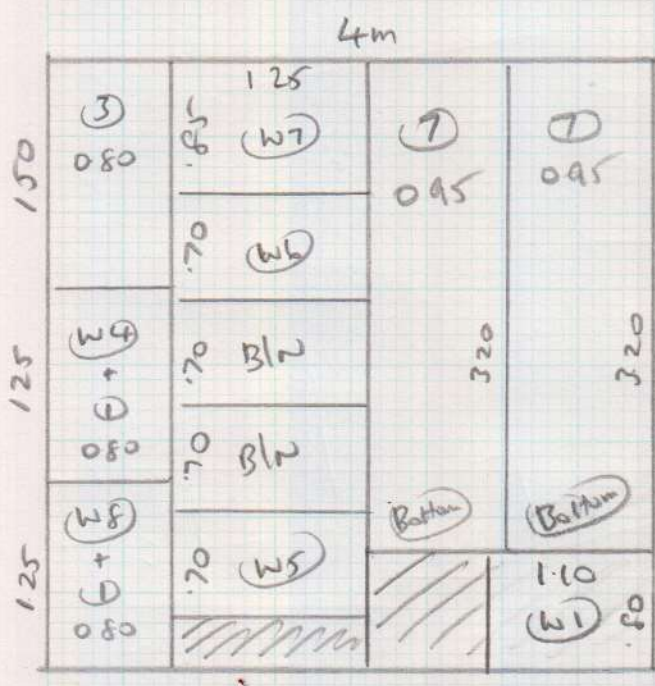 4m
150
3
0.80
125
W4
+
1
0.80
125
W8
+
1
0.80
1.25
.85
W7
.70
W6
.70
B/N
.70
B/N
.70
W5
7
0.95
320
Bottom
7
0.95
320
Bottom
1.10
W1
.80